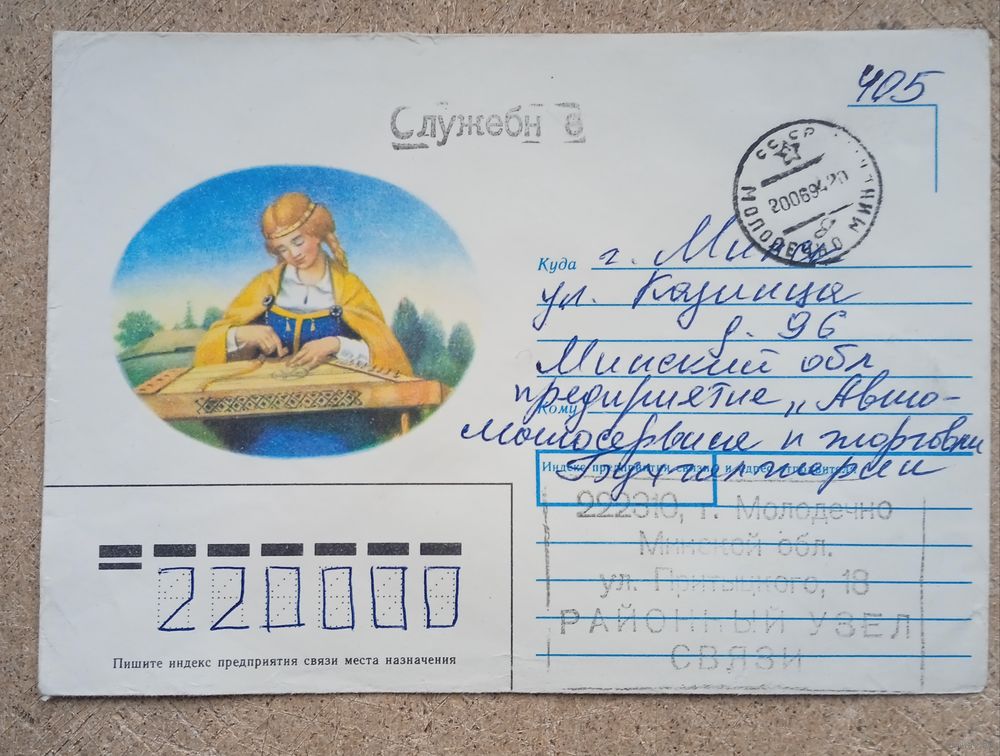 405
Служебн е
СССР
МОЛОДЕЧНО МИН
20069420
Куда г. Минск
ул. Казинца
д. 96
Минский обл
Кому
предприятие „Авто-
мотосервиса и торговли
Индекс предприятия связи и адрес отправителя
Бухгалтерии
222310, г. Молодечно
Минской обл.
ул. Притыцкого, 18
РАЙОННЫЙ УЗЕЛ
СВЯЗИ
220000
Пишите индекс предприятия связи места назначения